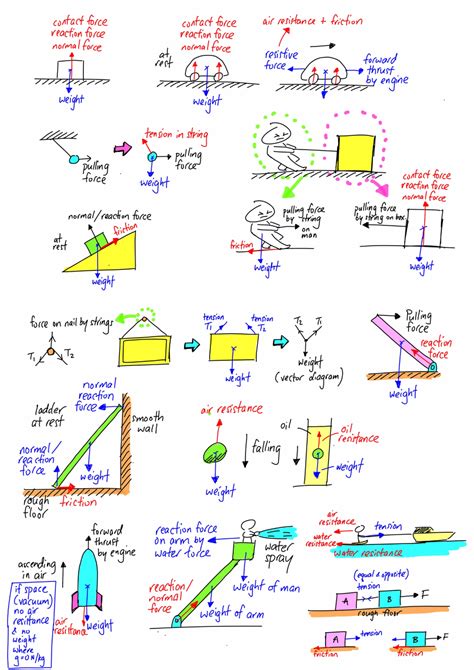 contact force
reaction force
normal force
weight
contact force
reaction force
normal force
at
rest
weight
air resistance + friction
resistive
force
forward
thrust
by engine
weight
pulling
force
tension in string
pulling
force
weight
contact force
reaction force
normal force
pulling force
by string
on
man
friction
weight
pulling force
by string on box
weight
normal/reaction force
friction
at
rest
weight
force on nail by strings
T₁
T₂
tension
T₁
tension
T₂
weight
T₂
T₁
weight
(vector diagram)
Pulling
force
reaction
force
weight
normal
reaction
force
ladder
at rest
smooth
wall
normal/
reaction
force
weight
rough
floor
friction
air resistance
falling
weight
oil
oil
resistance
weight
forward
thrust
by engine
ascending
in air
if space
(vacuum)
no air
resistance
& no
weight
where
g=0N/kg
air
resistance
weight
reaction force
on arm by
water force
water
spray
weight of man
reaction/
normal
force
weight of arm
air
resistance
tension
water resistance
water resistance
(equal & opposite)
tension
A
B
F
rough floor
tension
A
B
F
friction
friction